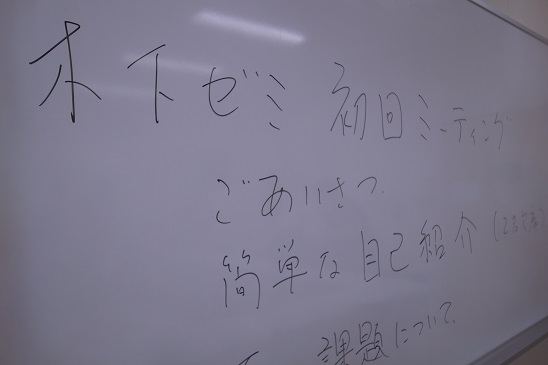 木下ゼミ 初回ミーティング
ごあいさつ
簡単な自己紹介
課題について